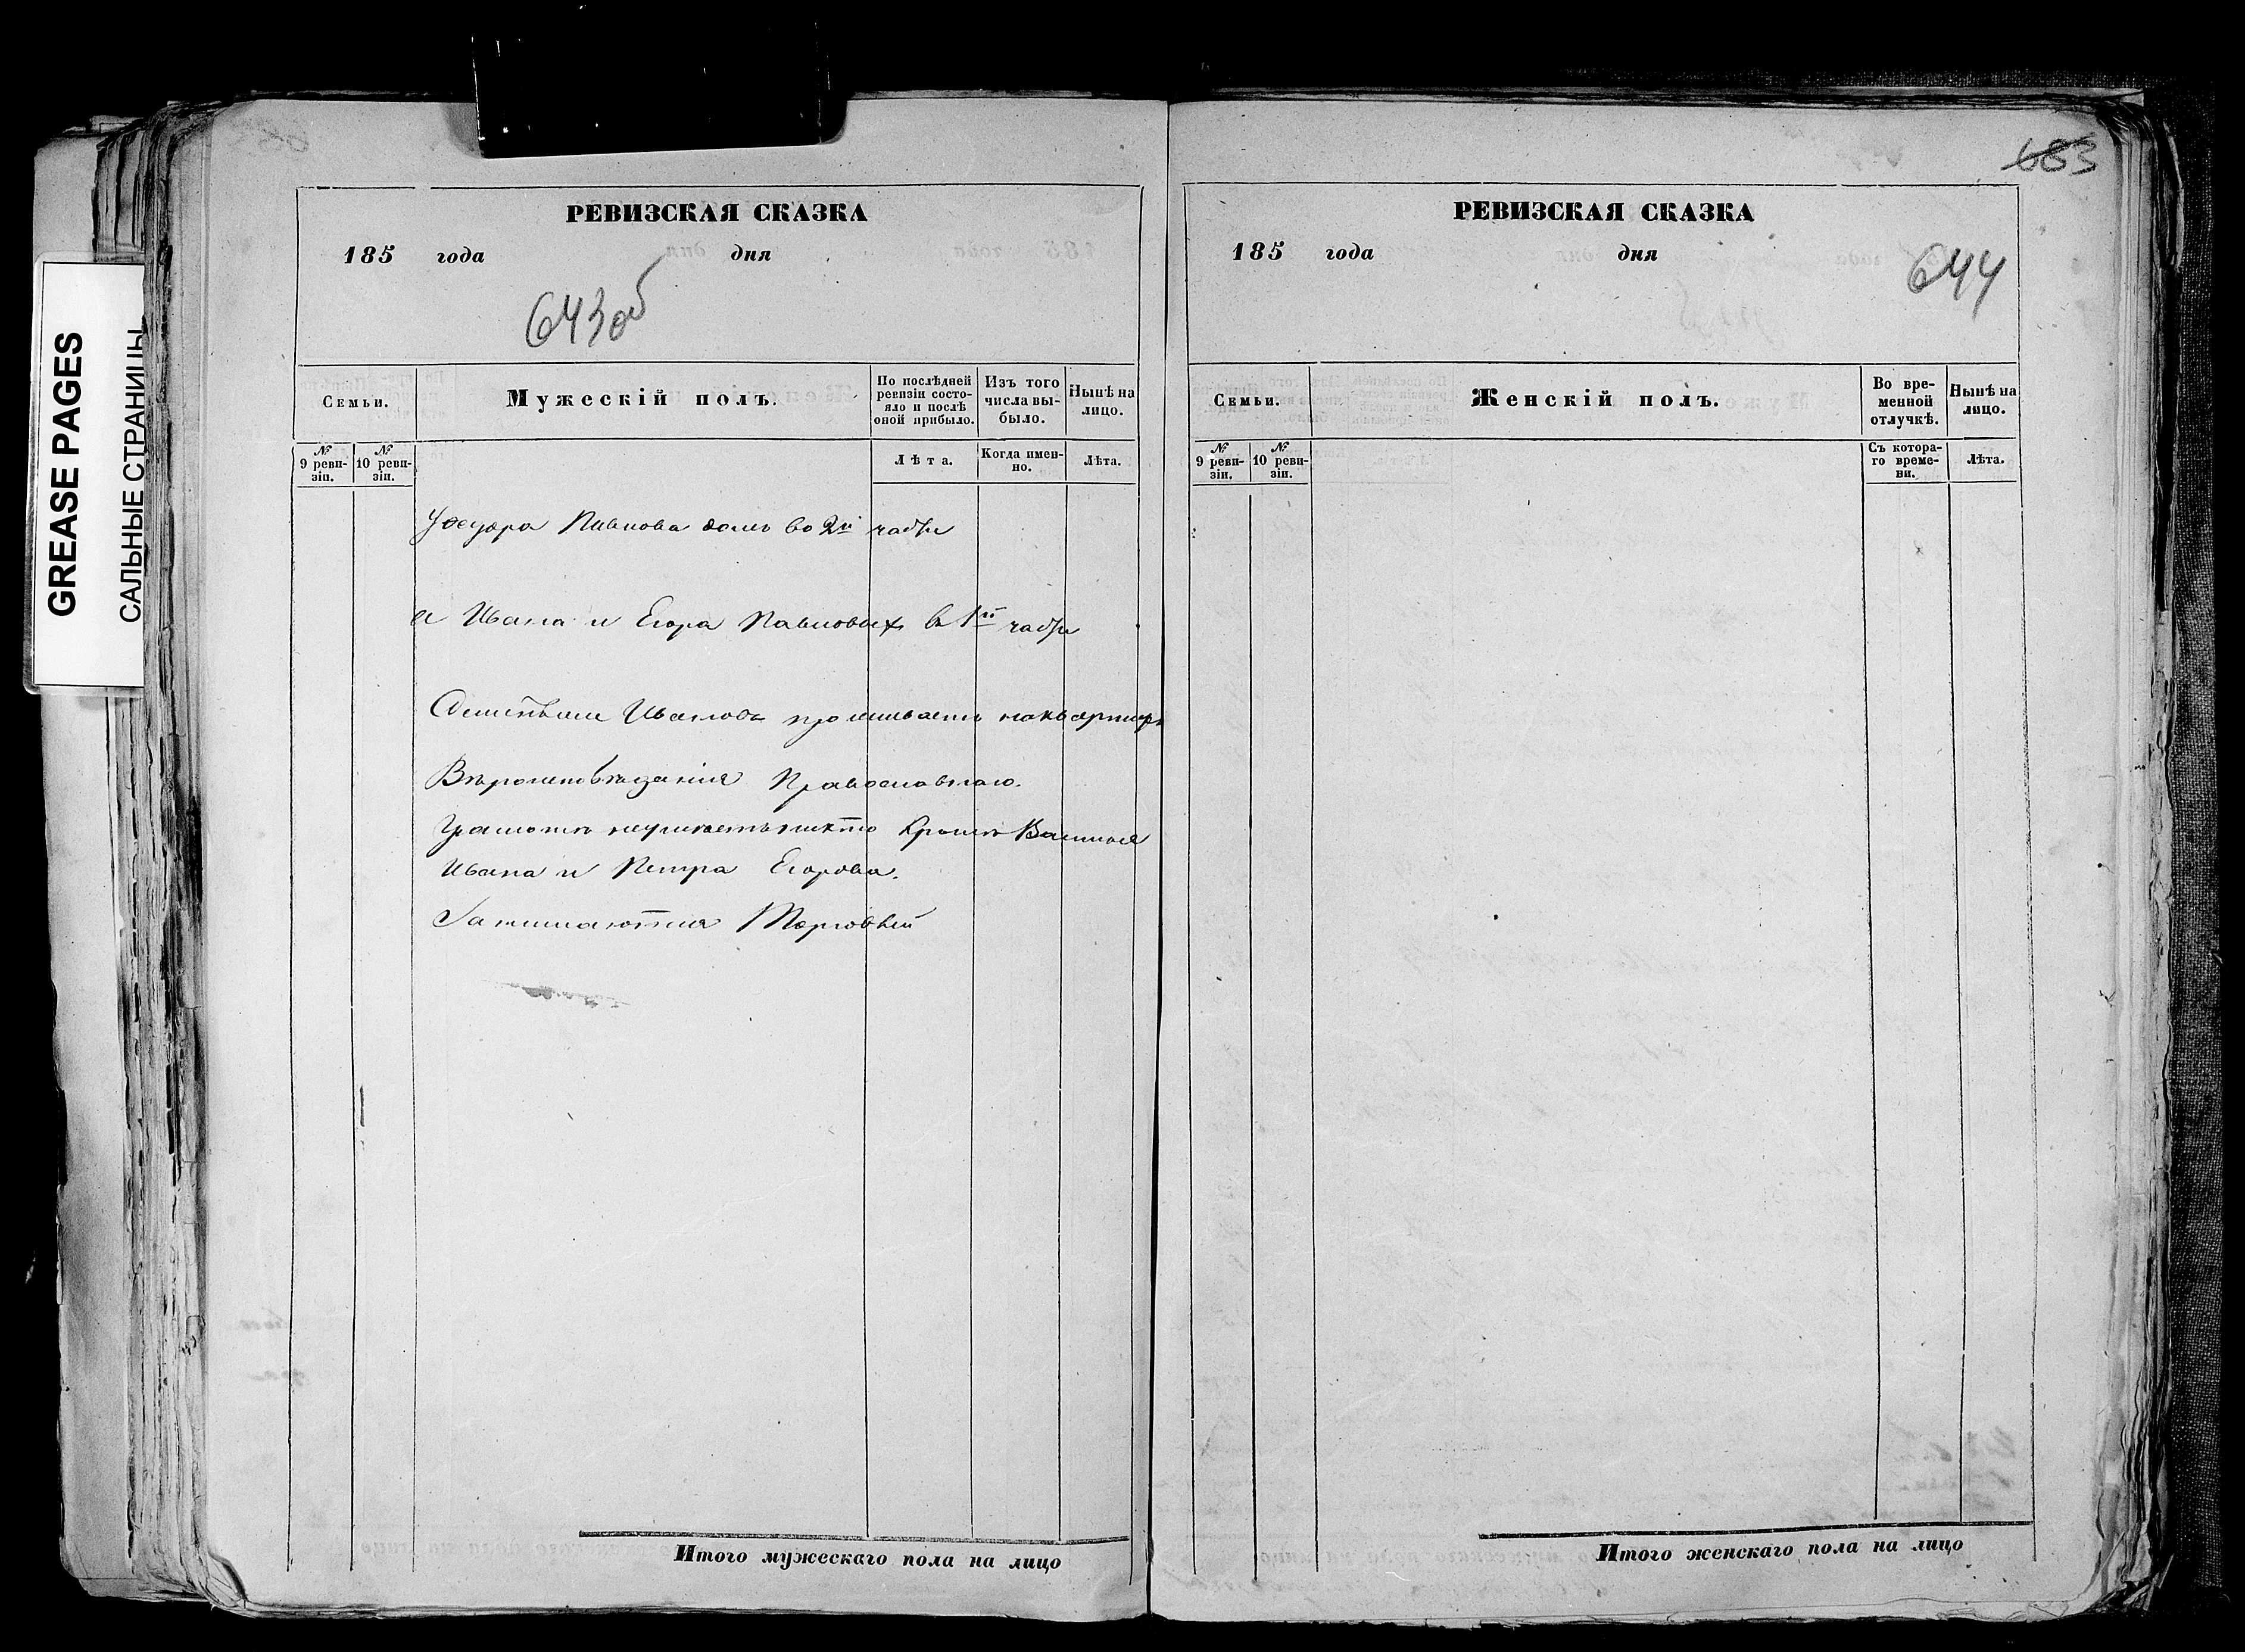 GREASE PAGES
САЛЬНЫЕ СТРАНИЦЫ
РЕВИЗСКАЯ СКАЗКА
185 года дня
643об
Семьи.
Мужескій полъ.
По послѣдней ревизіи состо-яло и послѣ оной прибыло.
Изъ того числа вы-было.
Нынѣ на лицо.
№ 9 реви-зіи.
№ 10 реви-зіи.
Лѣта.
Когда имен-но.
Лѣта.
У Ѳедора Павлова домъ во 2й части
а Ивана и Егора Павловых в 1й части
Иванова проживаетъ на квартирѣ
Вѣроисповѣданія Православнаго.
Грамотѣ неумѣетъ никто Кромѣ Василья
Ивана и Петра Егорова.
Занимаются Торговлей
Итого мужескаго пола на лицо
683
РЕВИЗСКАЯ СКАЗКА
185 года дня
644
Семьи.
Женскій полъ.
Во вре-менной отлучкѣ.
Нынѣ на лицо.
№ 9 реви-зіи.
№ 10 реви-зіи.
Съ котора-го време-ни.
Лѣта.
Итого женскаго пола на лицо